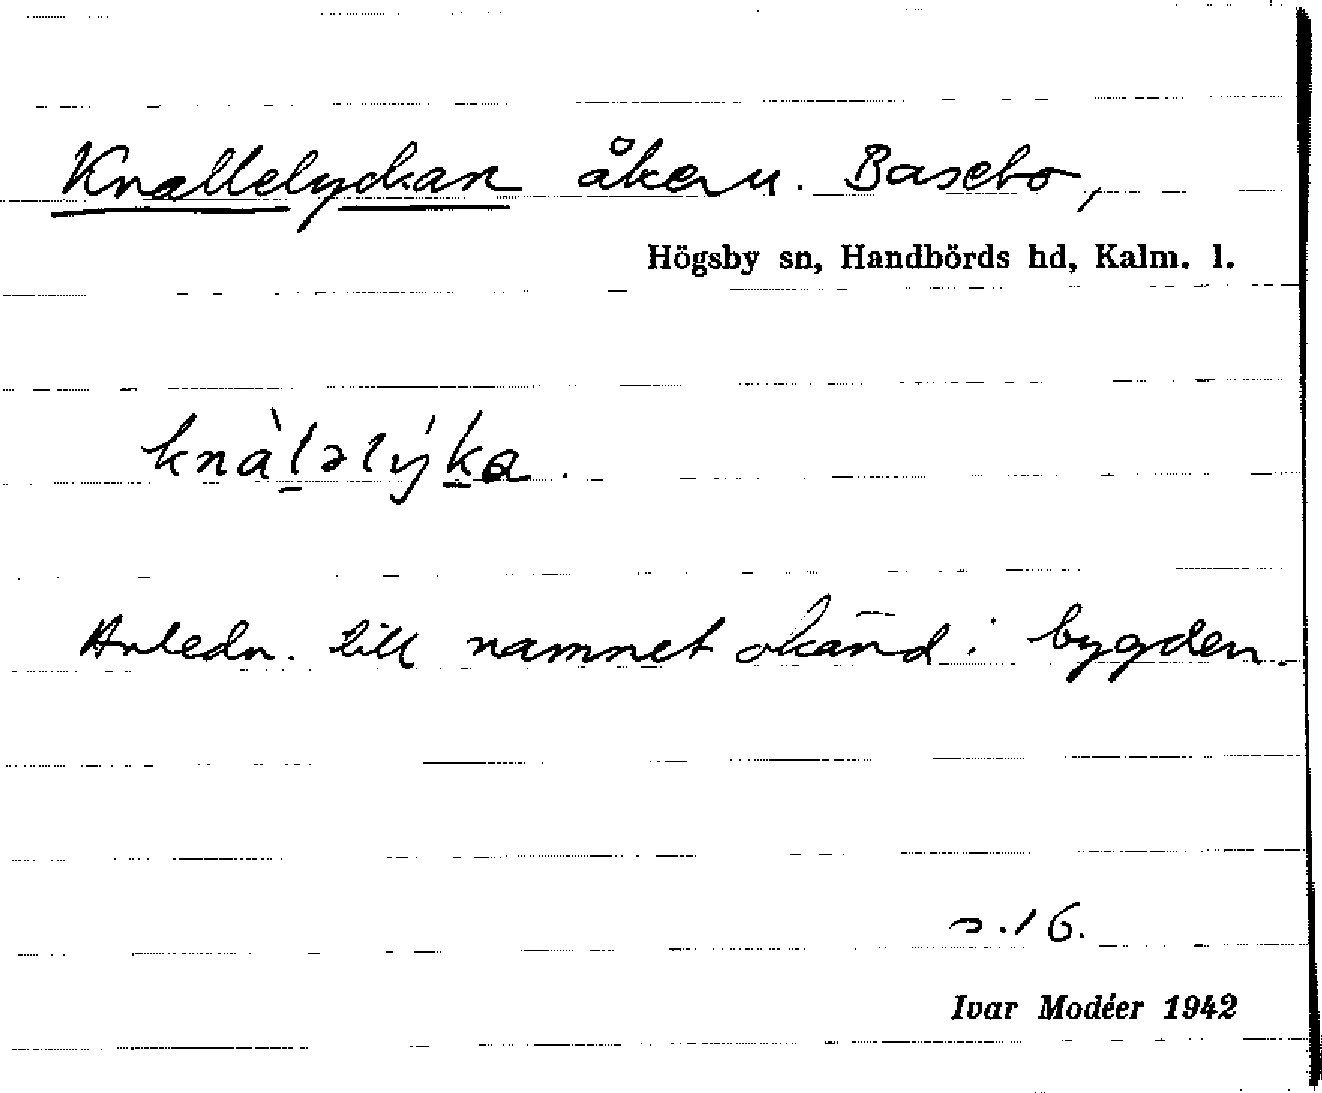 Knallelyckan åker u. Basebo,
Högsby sn, Handbörds hd, Kalm. l.
knàl̠əlýk̠a.
Anledn. till namnet okänd i bygden.
s. 16.
Ivar Modéer 1942